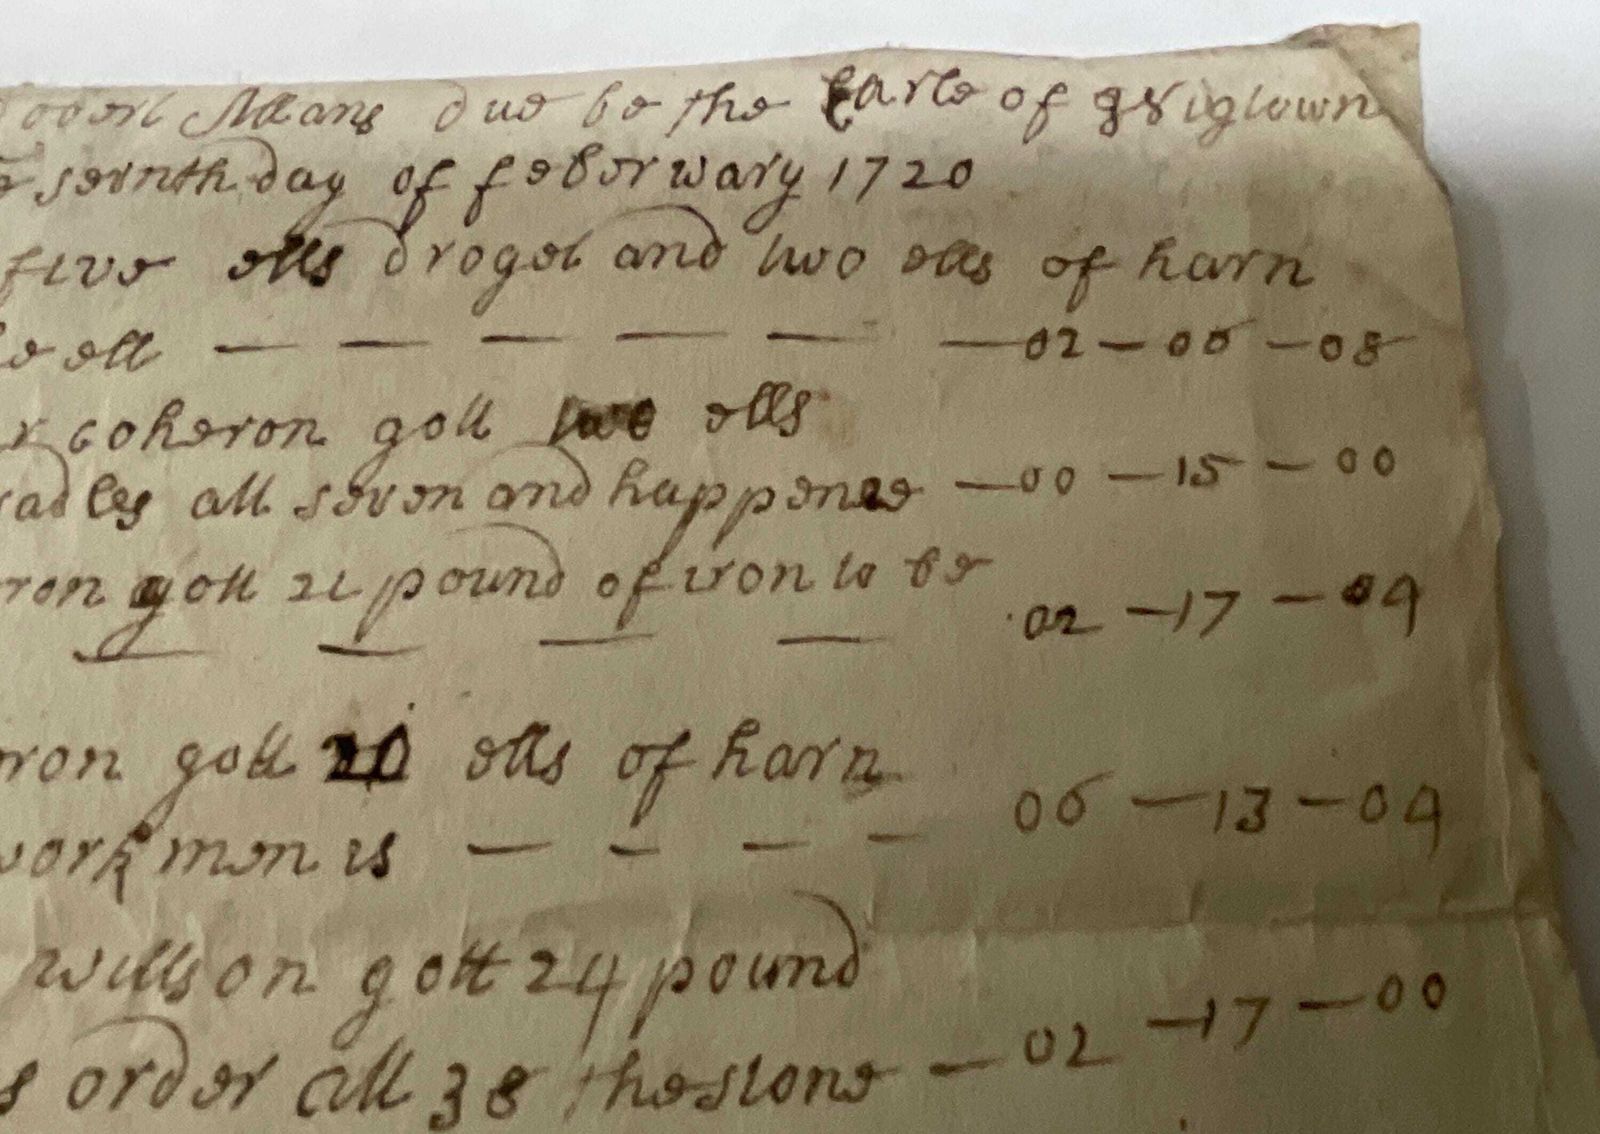 Accounts due be the Earle of
seventh day of feberwary 1720
five ells droget and two ells of harn
ell — — — — — — 02 — 06 — 08
coheron gott two ells
sadles att seven and happence — 00 — 15 — 00
ron gott 21 pound of iron to be
— — — — 02 — 17 — 04
ron gott 20 ells of harn
workmen is — — — — 06 — 13 — 04
willson gott 24 pound
order att 38 the stone — 02 — 17 — 00